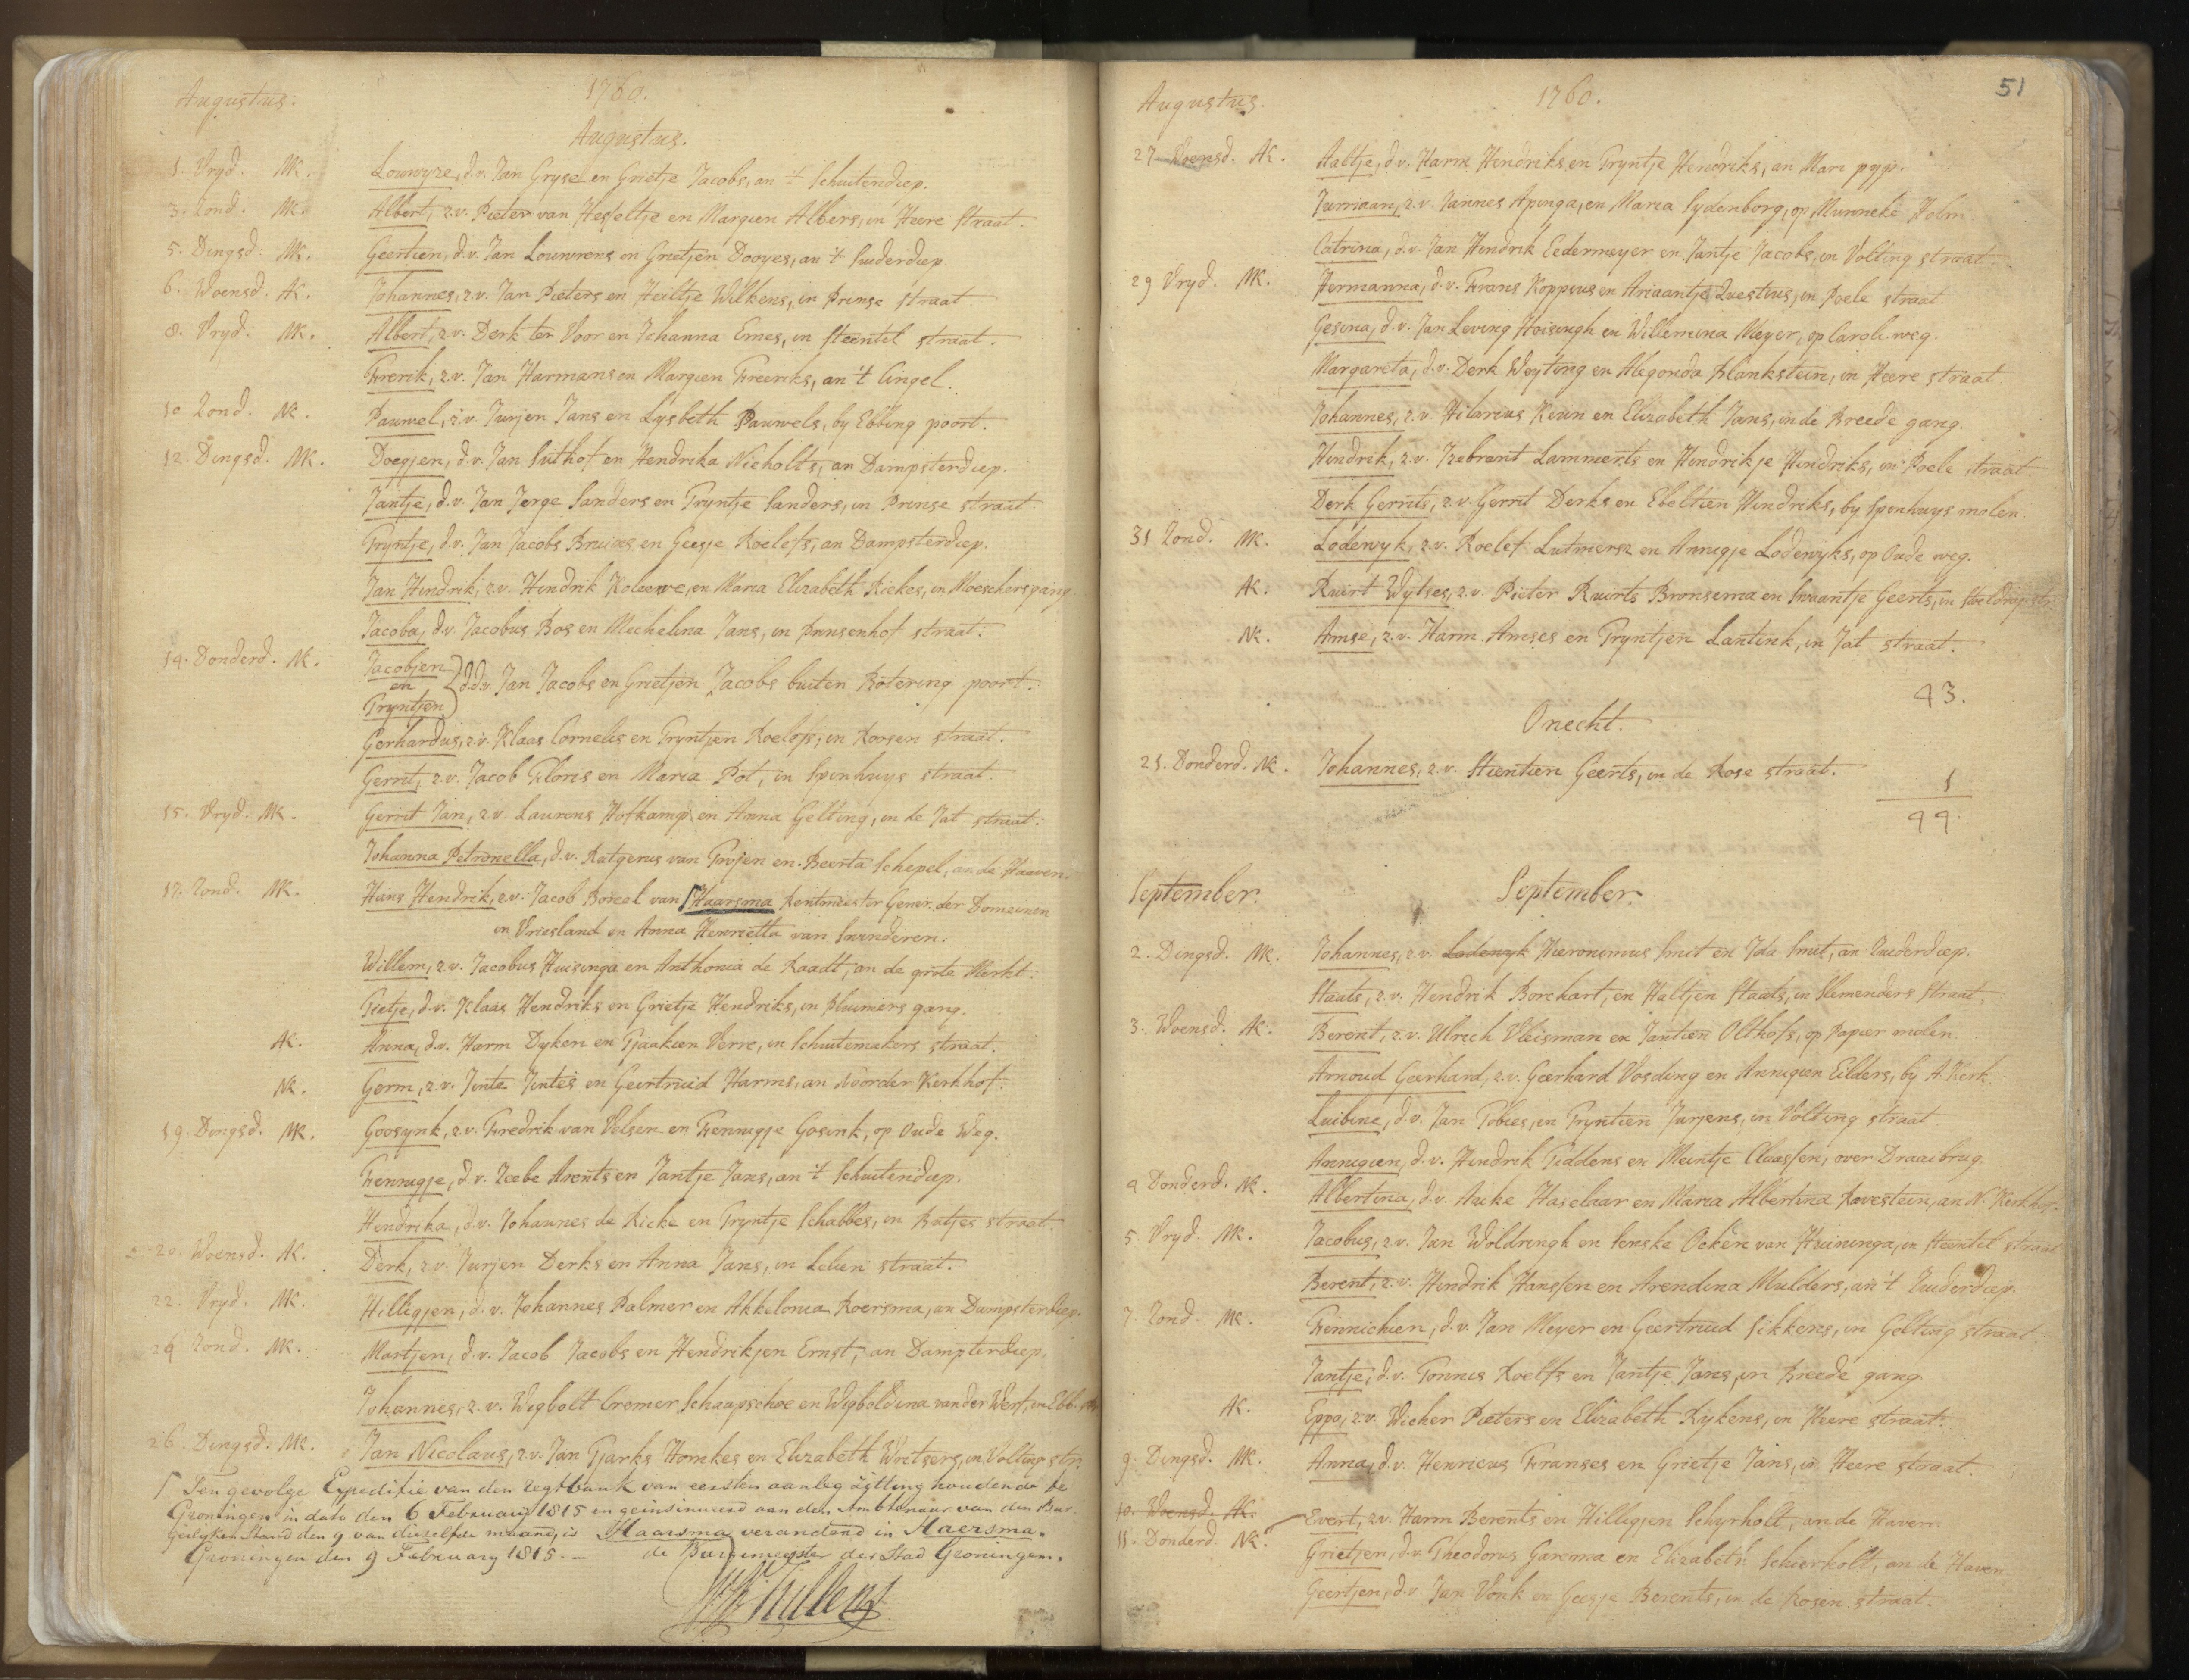 Augustus. 1760.
Augustus.
1. Vryd. MK. Louwyze, d.v. Jan Gryse en Grietje Jacobs, an 't Schuitendiep.
3. Zond. MK. Albert, z.v. Pieter van Hesseltje en Margien Albers, in Heere Straat.
5. Dingsd. MK. Geertien, d.v. Jan Louwrens en Grietjen Dooyes, an 't Suiderdiep.
6. Woensd. AK. Johannes, z.v. Jan Pieters en Heiltje Wilkens, in Prinse straat.
8. Vryd. MK. Albert, z.v. Derk ter Voor en Johanna Emes, in Steentil straat.
Frerik, z.v. Jan Harmans en Margien Freeriks, an 't Cingel.
10. Zond. NK. Pauwel, z.v. Jurjen Jans en Lysbeth Pauwels, by Ebbing poort.
12. Dingsd. MK. Doegjen, d.v. Jan Suthof en Hendrika Nieholts, an Dampsterdiep.
Jantje, d.v. Jan Jerge Sanders en Tryntje Sanders, in Prinse straat.
Tryntje, d.v. Jan Jacobs Bruins en Geesje Roelefs, an Dampsterdiep.
Jan Hindrik, z.v. Hindrik Koleewe, en Maria Elizabeth Riekes, in Moeschersgang.
Jacoba, d.v. Jacobus Bos en Mechelina Jans, in Prinsenhof straat.
14. Donderd. NK. Jacobjen
en } d.d.v. Jan Jacobs en Grietjen Jacobs buiten Botering poort.
Tryntjen
Gerhardus, z.v. Klaas Cornelis en Tryntjen Roelofs, in Rosen straat.
Gerrit, z.v. Jacob Floris en Maria Pot, in Spinhuys straat.
15. Vryd. MK. Gerrit Jan, z.v. Laurens Hofkamp en Anna Gelting, in de Jat straat.
Johanna Petronella, d.v. Rutgerus van Trojen en Beerta Schepel, an de Haaven.
17. Zond. MK. Hans Hendrik, z.v. Jacob Boreel van Haarsma Rentmeester Gener. der Domeinen
in Vriesland en Anna Henrietta van Swinderen.
Willem, z.v. Jacobus Huisinga en Anthonia de Raadt, an de grote Merkt.
Tietje, d.v. Klaas Hendriks en Grietje Hendriks, in Pluimers gang.
AK. Anna, d.v. Harm Dyken en Tjaakien Verre, in Schuitemakers straat.
NK. Germ, z.v. Jinte Jintes en Geertruid Harms, an Noorder Kerkhof.
19. Dingsd. MK. Goosynk, z.v. Fredrik van Velsen en Fennigje Gosink, op Oude Weg.
Fennigje, d.v. Zeebe Arents en Jantje Jans, an 't Schuitendiep.
Hendrika, d.v. Johannes de Ricke en Tryntje Schabbes, in Butjes straat.
20. Woensd. AK. Derk, z.v. Jurjen Derks en Anna Jans, in Lelien straat.
22. Vryd. MK. Hilligjen, d.v. Johannes Palmer en Akkelonia Roersma, an Dampsterdiep.
24 Zond. MK. Martjen, d.v. Jacob Jacobs en Hendrikjen Ernst, an Dampterdiep.
Johannes, z.v. Wigbolt Cremer Schaapschoe en Wigboldina vander Werf, in Ebb. str.
26. Dingsd. MK. Jan Nicolaus, z.v. Jan Tjarks Homkes en Elizabeth Writsers, in Volting str.
Ten gevolge Expeditie van den regtbank van eersten aanleg zitting houdende te
Groningen in dato den 6 February 1815 en geinsinueerd aan den Ambtenaar van den Bur
gerlyken Stand den 9 van diezelfde maand, is Haarsma veranderd in Haersma.
Groningen den 9 February 1815. — de Burgemeester der Stad Groningen.
Augustus. 1760. 51
27 Woensd. AK. Aaltje, d.v. Harm Hindriks en Tryntje Hendriks, an Mari pyp.
Jurriaan, z.v. Jannes Apinga, en Maria Sydenborg, op Munneke Holm.
Catrina, d.v. Jan Hindrik Eedermeyer en Jantje Jacobs, in Volting straat.
29 Vryd. MK. Hermanna, d.v. Frans Koppius en Ariaantje Questius, in Poele straat.
Gesina, d.v. Jan Leving Hoisingh en Willemina Meyer, op Caroli weg.
Margareta, d.v. Derk Weyting en Alegonda Blankstein, in Heere straat.
Johannes, z.v. Hilarius Keun en Elizabeth Jans, in de Breede gang.
Hindrik, z.v. Izebrant Lammerts en Hindrikje Hindriks, in Poele straat.
Derk Gerrits, z.v. Gerrit Derks en Ebeltien Hindriks, by Spinhuys molen.
31 Zond. MK. Lodewyk, z.v. Roelef Lutmersz en Annigje Lodewyks, op Oude weg.
AK. Ruirt Wytses, z.v. Pieter Ruirts Bronsema en Swaantje Geerts, in Stoeldrayer str.
NK. Amse, z.v. Harm Amses en Tryntjen Lantink, in Jat straat.
43.
Onecht.
21. Donderd. NK. Johannes, z.v. Stientien Geerts, in de Rose straat.
1
44.
September. September.
2. Dingsd. MK. Johannes, z.v. Lodewyk Hieronimus Smit en Ida Smit, an Zuiderdiep.
Staats, z.v. Hendrik Borchart, en Haltjen Staats, in Slemenders Straat.
3. Woensd. AK. Berent, z.v. Ulrich Vleisman en Jantien Olthofs, op Papier molen.
Arnoud Geerhard, z.v. Geerhard Vosding en Annigien Eilders, by A. Kerk.
Luibine, d.v. Jan Tobies, en Tryntien Jurjens, in Volting straat.
Annigien, d.v. Hindrik Tiddens en Meintje Claassen, over Draaibrug.
4 Donderd. NK. Albertina, d.v. Auke Haselaar en Maria Albertina Ravestein, an N. Kerkhof.
5. Vryd. MK. Jacobus, z.v. Jan Woldringh en Senske Ocken van Huininga, in Steentil straat.
Berent, z.v. Hindrik Hanssen en Arendina Mulders, an 't Zuiderdiep.
7. Zond. MK. Fennichien, d.v. Jan Meyer en Geertruid Sikkens, in Gelting straat.
Jantje, d.v. Tonnis Roelfs en Jantje Jans, in Breede gang.
AK. Eppo, z.v. Wicher Pieters en Elizabeth Rykens, in Heere straat.
9. Dingsd. MK. Anna, d.v. Henricus Franses en Grietje Jans, in Heere straat.
10. Woensd. AK. Evert, z.v. Harm Berents en Hilligjen Schyrholt, an de Haven.
11. Donderd. NK. Grietjen, d.v. Theodorus Garema en Elizabeth Schierholt, an de Haven.
Geertjen, d.v. Jan Vonk en Geesje Berents, in de Rosen straat.